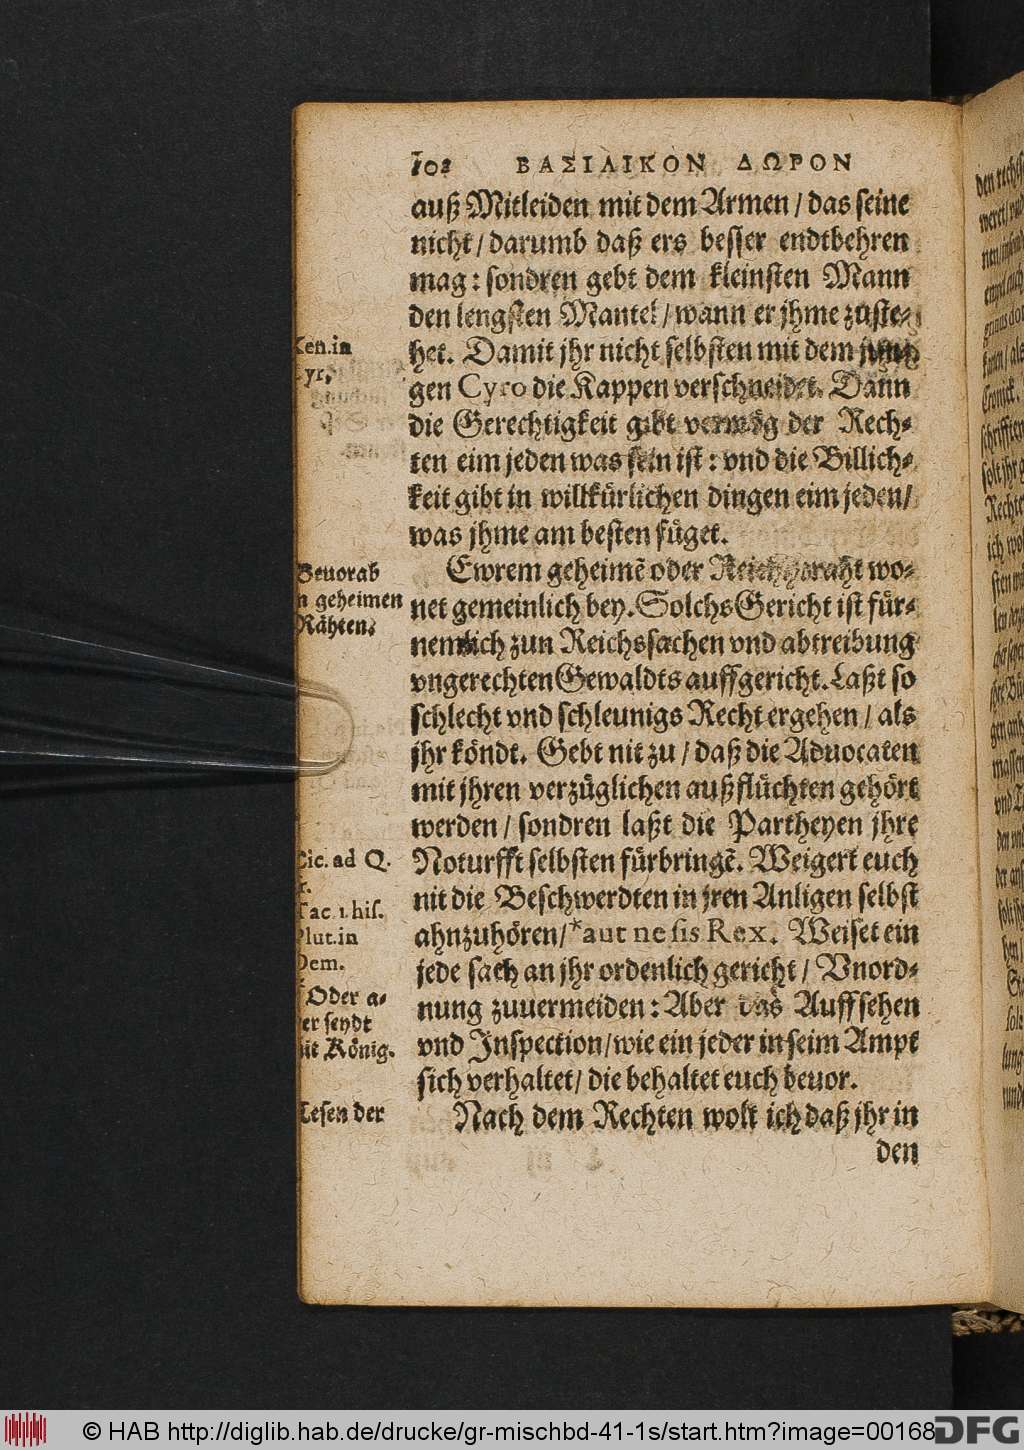 102 ΒΑΣΙΛΙΚΟΝ ΔΩΡΟΝ
auß Mitleiden mit dem Armen / das seine
nicht / darumb daß ers besser endtbehren
mag : sondren gebt dem kleinsten Mann
den lengsten Mantel / wann er jhme zuste-
het. Damit jhr nicht selbsten mit dem jun-
gen Cyro die Kappen verschneidet. Dann
die Gerechtigkeit gibt vermög der Rech-
ten eim jeden was sein ist : vnd die Billich-
keit gibt in willkürlichen dingen eim jeden /
was jhme am besten füget.
Ewrem geheimẽ oder Reichsraht wo-
net gemeinlich bey. Solchs Gericht ist für-
nemlich zun Reichssachen vnd abtreibung
vngerechten Gewaldts auffgericht. Laßt so
schlecht vnd schleunigs Recht ergehen / als
jhr köndt. Gebt nit zu / daß die Aduocaten
mit jhren verzüglichen außflüchten gehört
werden / sondren laßt die Partheyen jhre
Noturfft selbsten fürbringẽ. Weigert euch
nit die Beschwerdten in jren Anligen selbst
ahnzuhören / *aut ne sis Rex. Weiset ein
jede sach an jhr ordenlich gericht / Vnord-
nung zuuermeiden : Aber das Auffsehen
vnd Inspection / wie ein jeder in seim Ampt
sich verhaltet / die behaltet euch beuor.
Nach dem Rechten wolt ich daß jhr in
den
Xen. in
Cyr.
Beuorab
n geheimen
Rähten.
Cic. ad Q.
r.
Tac. 1. his.
Plut. in
Dem.
* Oder a-
er seydt
nit König.
Lesen der
© HAB http://diglib.hab.de/drucke/gr-mischbd-41-1s/start.htm?image=00168
DFG